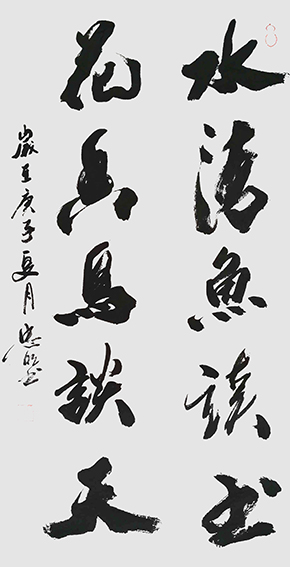 水清魚讀书
花香鳥談天
歲在庚子夏月